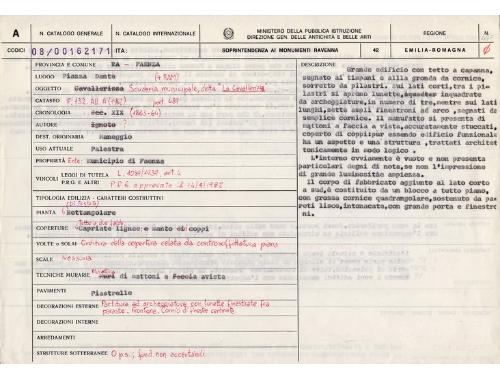 A
N. CATALOGO GENERALE
N. CATALOGO INTERNAZIONALE
MINISTERO DELLA PUBBLICA ISTRUZIONE
DIREZIONE GEN. DELLE ANTICHITÀ E BELLE ARTI
REGIONE
N.
CODICI
08/00162171
ITA:
SOPRINTENDENZA AI MONUMENTI RAVENNA
42
EMILIA-ROMAGNA
PROVINCIA E COMUNE RA - FAENZA
LUOGO Piazza Dante
OGGETTO Cavallerizza Scuderia municipale, detta La Cavallerizza
CATASTO
CRONOLOGIA Sec. XIX (1863-64)
AUTORE Ignoto
DEST. ORIGINARIA Maneggio
USO ATTUALE Palestra
PROPRIETÀ Ente: Municipio di Faenza
VINCOLI LEGGI DI TUTELA L. 1089/1939 art. 4
P.R.G. E ALTRI P.R.G. approvato il
TIPOLOGIA EDILIZIA - CARATTERI COSTRUTTIVI
PIANTA Rettangolare
COPERTURE Capriate lignee e manto di coppi
VOLTE o SOLAI Orditura della copertura celata da controsoffittatura piana
SCALE Nessuna
TECNICHE MURARIE Muri di mattoni a faccia vista
PAVIMENTI Piastrelle
DECORAZIONI ESTERNE Partitura ad archeggiature con lunette finestrate fra
paraste. Frontone. Cornici di finestre centinate.
DECORAZIONI INTERNE
ARREDAMENTI
STRUTTURE SOTTERRANEE
DESCRIZIONE
Grande edificio con tetto a capanna,
segnato ai timpani e alla gronda da cornice,
sorretto da pilastri. Sui lati corti, tra i pi=
lastri si aprono lunette, inquadrate
da archeggiature, in numero di tre, mentre sui lati
lunghi, sette sono i finestroni ad arco, segnati da
semplice cornice. Il manufatto si presenta di
mattoni a faccia a vista, accuratamente stuccati,
coperto di coppi pur essendo edificio funzionale
ha un aspetto e una struttura, trattati architet
tonicamente in modo logico.
L'interno ovviamente è vuoto e non presenta
particolari degni di nota, se non l'impressione
di grande luminosità e ampiezza.
Il corpo di fabbricato aggiunto al lato corto
a sud, è costituito da un blocco a tetto piano,
con grossa cornice quadrangolare, sostenuto da pa
reti lisce, intonacate, con grande porta e finestri
ni.